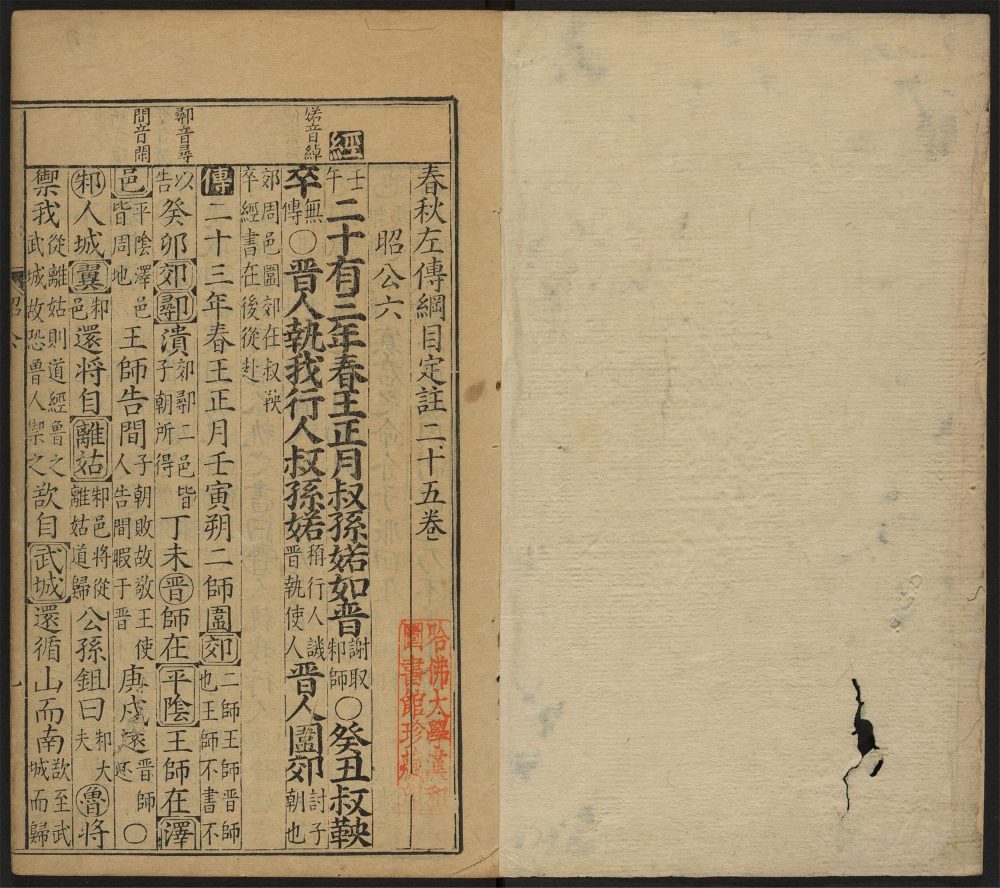 春秋左傳綱目定註二十五卷
昭公六
婼音綽
經
壬午二十有三年春王正月叔孫婼如晉謝取邾師○癸丑叔鞅
卒無傳○晉人執我行人叔孫婼稱行人譏晉執使人晉人圍郊討子朝也
郊周邑圍郊在叔鞅卒經書在後從赴
傳二十三年春王正月壬寅朔二師圍郊二師王師晉師也王師不書不
鄩音尋
以告癸卯郊鄩潰郊鄩二邑皆子朝所得丁未晉師在平陰王師在澤
間音閑
邑平陰澤邑皆周地王師告間子朝敗故敬王使人告間暇于晉庚戌還晉師還○
邾人城翼邾邑還將自離姑邾邑將從離姑道歸公孫鉏曰邾大夫魯將
禦我從離姑則道經魯之武城故恐魯人禦之欲自武城還循山而南欲至武城而歸
哈佛大學漢和
圖書館珍藏印